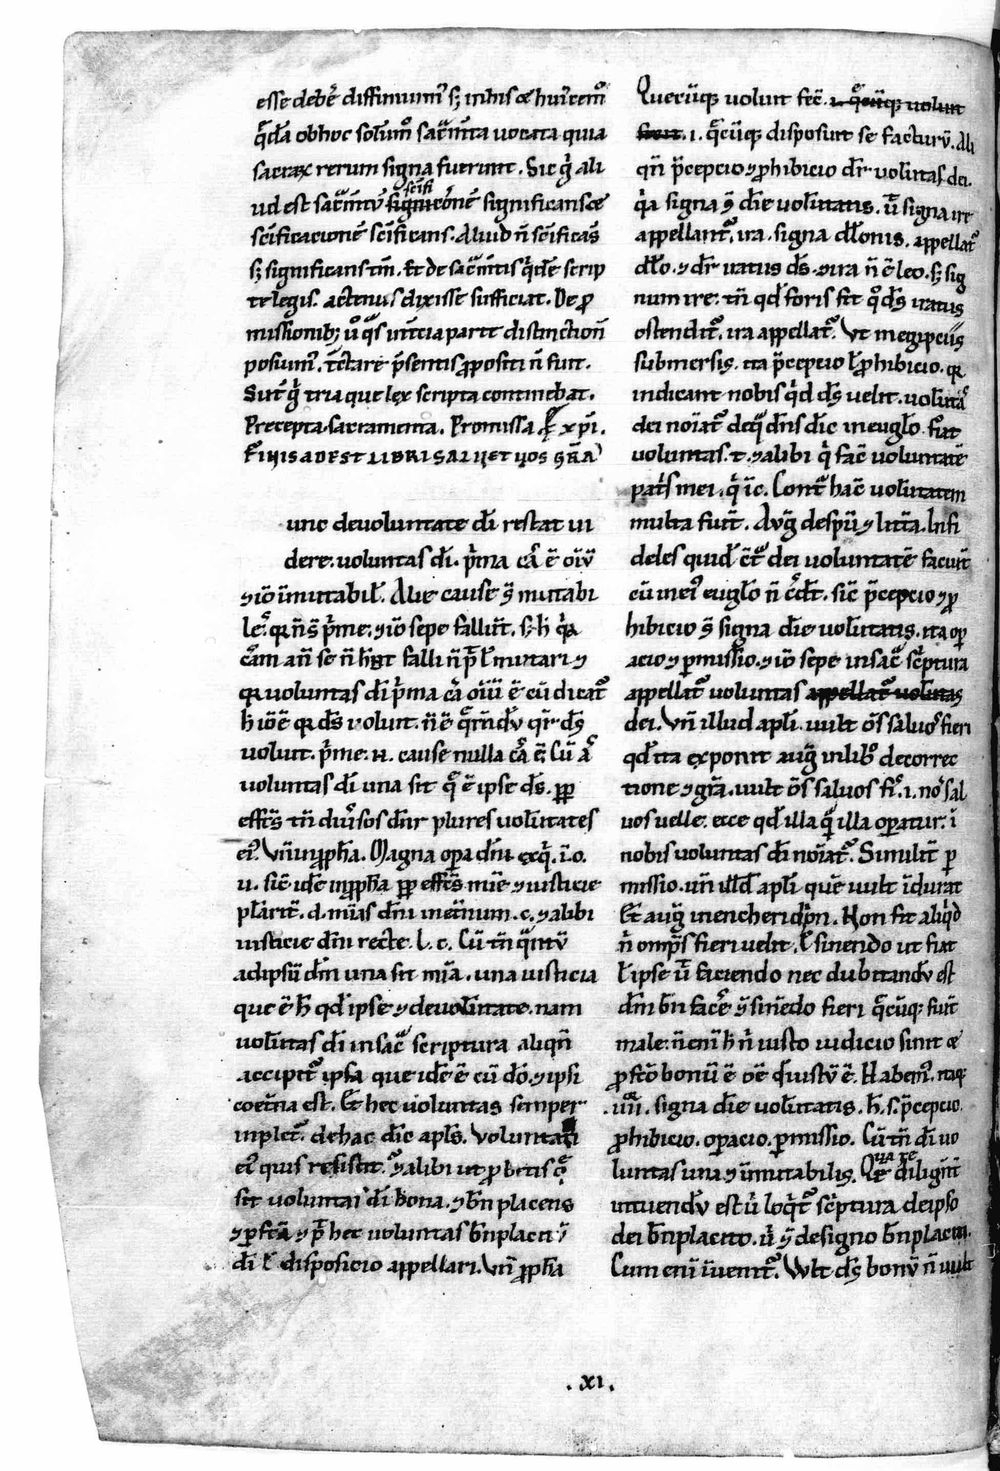 esse debēt diffinimur̄ sꝫ in his ⁊ huiꝰcemōi
q̄dā ob hoc solum̄o sac̄mta uocata quia
sacraꝝ rerum signa fuerunt. Sic gͥ ali
ud est sac̄mtū sc̄ifi significans ⁊
sc̄ificacionē sc̄ificans. Aliud n̄ sc̄ificās
sꝫ significans tm̄. Et de sac̄mtis q̄dē scrip
te legis. actenus dixisse sufficiat. De ꝓ
missionibꝫ ūo q̄s in t̄cia parte distinctionū
posuimꝰ. t̄ctare p̄sentis ꝓpositi n̄ fuit.
Sūt gͥ tria que lex scripta continebat.
Precepta. sacramenta. Promissa xp̄i.
FINIS ADEST LIBRI SALUET UOS GR̄A
unc de uoluntate dī restat ui
dere. uoluntas dī. p̄ma cā ē oīū
⁊ iō īmutabil̄. Alie cause s̄ mutabi
les. qꝛ n̄ s̄ p̄me. ⁊ iō sepe fallūt. sꝫ h̄ qͥa
cām an̄ se n̄ h̄t falli n̄ p̄t ł mutari ⁊
qꝛ uoluntas dī p̄ma cā oīū ē cū dicatͬ
h̄ iō ē qꝛ ds̄ uoluit. n̄ ē q̄rndū qͬ ds̄
uoluit. p̄me .n. cause nulla cā ē. Cū aͬ
uoluntas dī una sit q̄ ē ipse ds̄. ꝓp
effcs̄ tn̄ diuͬsos dn̄r plures uolūtates
eiꝰ. Vn̄ in ꝓph̄a. Magna opa dn̄i exq̄. ī. o.
u. sic̄ idē in ꝓph̄a ꝓp effcs̄ mīe ⁊ iusticie
pl̄arit̄. d. mīas dn̄i in et̄num. c. ⁊ alibi
iusticie dn̄i recte. l. c. Cū tn̄ q̄ntū
ad ipsū dm̄ una sit mīa. una iusticia
que ē h̄ qd̄ ipse ⁊ de uolūtate. nam
uolūtas dī in sac̄ scriptura aliqn̄
accipitͬ ipsa que idē ē cū dō. ⁊ ipsi
coet̄na est. Et hec uoluntas semper
inpletͬ. de hac dic̄ apl̄s. Voluntati
eiꝰ quis resistit. ⁊ alibi ut ꝓbetis q̄
sit uoluntas dī bona. ⁊ bn̄ placens
⁊ ꝑfcā ⁊ p̄t hec uoluntas bn̄placitū
dī ł disposicio appellari. Vn̄ ꝓph̄a
Quecūqꝫ uoluit fec̄. .i. q̄cūqꝫ uoluit
fecit. .i. q̄cūqꝫ disposuit se facturū. Ali
qn̄ p̄cepcio ⁊ ꝓhibicio dr̄ uolūtas dei.
qͥa signa s̄ diē uolūtatis. ut̄ signa ire
appellantͬ. ira. signa dl̄onis. appellatͬ
dl̄o. ⁊ dr̄ iratus ds̄. ⁊ ira n̄ ē ī eo. sꝫ sig
num ire. tn̄ qd̄ foris fit qͦ ds̄ iratus
ostenditͬ. ira appellatͬ. Vt in egipciis
submersis. ita p̄cepcio ł ꝓhibicio. qꝛ
indicant nobis qͥd ds̄ uelit. uolūtas
dei noīatͬ de q̄ dn̄s dic̄ in eugl̄o. fiat
uoluntas. t. ⁊ alibi qͥ fac̄ uoluntatē
pat̄s mei. qͥ ī c. Contͣ hac̄ uolūtatem
multa fiūt. Avḡ de spū ⁊ litt̄a. Infi
deles quidē ēt̄ dei uoluntatē faciūt
cū in eiꝰ euglō n̄ c̄dt̄. sic̄ p̄cepcio ⁊ ꝓ
hibicio s̄ signa diē uolūtatis. ita op̄
acio ⁊ ꝑmissio. ⁊ iō sepe in sac̄ sc̄ptura
appellatͬ uoluntas appellatͬ uolūtas
dei. Vn̄ illud apl̄i. uult ōs saluos fieri
qd̄ ita exponit aug̃ in libͦ de correc
tione ⁊ gr̄a. uult ōs saluos fͥ. .i. nos sal
uos uelle. ecce qd̄ illa qͣ illa operatur. ī
nobis uoluntas dī noīatͬ. Similit̄ ꝑ
missio. un̄ illd̄ apl̄i quē uult īdurat
Et aug̃ in encheridi̅n. Non fit aliqͥd
n̄ omp̄s fieri uelit. ł sinendo ut fiat
ł ipse ut̄ faciendo nec dubitandū est
dm̄ bn̄ fac̄e ⁊ sinēdo fieri q̄cūqꝫ fiūt
male. n̄ enī h̄ n̄ iusto iudicio sinit ⁊
ꝓfcō bonū ē oē qͦd iustū ē. Habemꝰ. itaqꝫ
.iiii. signa diē uolūtatis. h̄. s. p̄cepcio.
ꝓhibicio. operacio. ꝑmissio. Cū tn̄ dī uo
luntas una ⁊ īmutabilis. Qua re diligēt̄
intuendū est ū loqͥtͬ sc̄ptura de ipso
dei bn̄placito. ū ⁊ de signo bn̄placiti.
Cum enī īuenitͬ. Vult ds̄ bonū n̄ uult
.xi.